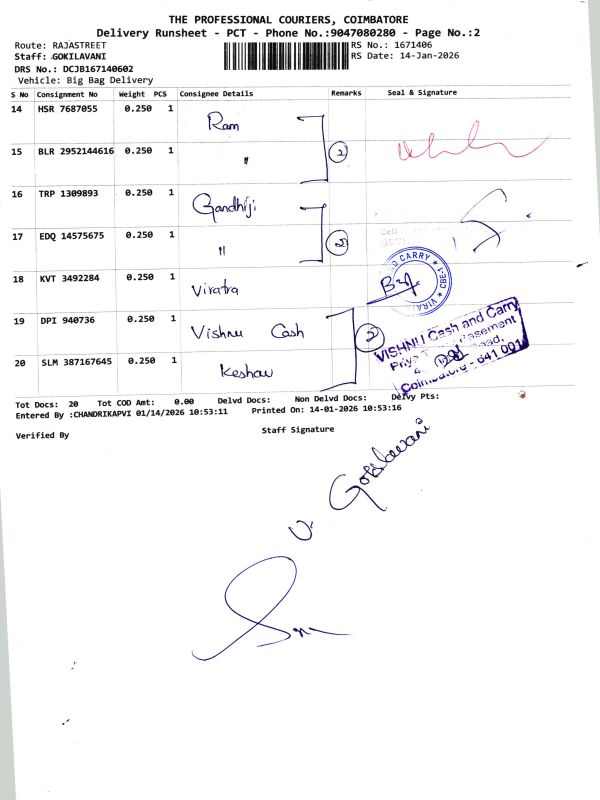 THE PROFESSIONAL COURIERS, COIMBATORE
Delivery Runsheet - PCT - Phone No.:9047080280 - Page No.:2
Route: RAJASTREET RS No.: 1671406
Staff: GOKILAVANI RS Date: 14-Jan-2026
DRS No.: DCJB167140602
Vehicle: Big Bag Delivery
S No Consignment No Weight PCS Consignee Details Remarks Seal & Signature
14 HSR 7687055 0.250 1 Ram
15 BLR 2952144616 0.250 1 " 2
16 TRP 1309893 0.250 1 Gandhiji
17 EDQ 14575675 0.250 1 " 2
18 KVT 3492284 0.250 1 Viratra
CARRY ★ CBE-1 ★
19 DPI 940736 0.250 1 Vishnu Cash 2
VISHNU Cash and Carry
Coimbatore - 641 001
20 SLM 387167645 0.250 1 Keshav
Tot Docs: 20 Tot COD Amt: 0.00 Delvd Docs: Non Delvd Docs: Delvy Pts:
Entered By :CHANDRIKAPVI 01/14/2026 10:53:11 Printed On: 14-01-2026 10:53:16
Verified By Staff Signature
V. Gokilavani